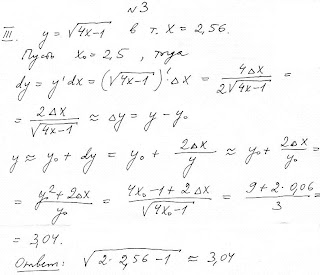 №3
III. y = √(4x-1) в т. x = 2,56.
Пусть x₀ = 2,5 , тогда
dy = y'dx = (√(4x-1))'·Δx = 4Δx / 2√(4x-1) =
= 2Δx / √(4x-1) ≈ Δy = y - y₀
y ≈ y₀ + dy = y₀ + 2Δx / y ≈ y₀ + 2Δx / y₀ =
= (y₀² + 2Δx) / y₀ = (4x₀ - 1 + 2Δx) / √(4x₀-1) = (9 + 2·0,06) / 3 =
= 3,04.
Ответ: √(2·2,56 - 1) ≈ 3,04